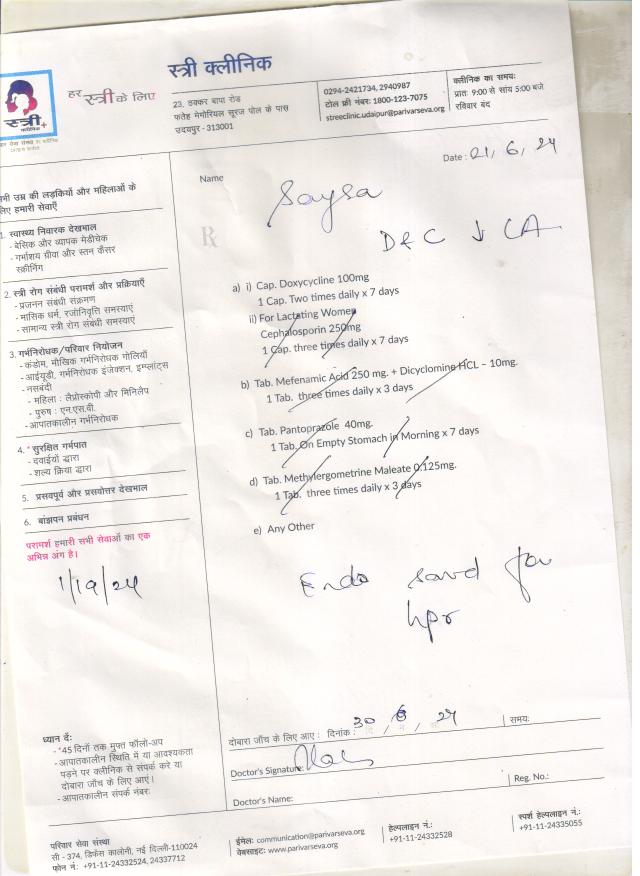 स्त्री क्लीनिक
हर स्त्री के लिए
स्त्री
क्लीनिक
23, ठक्कर बापा रोड
फतेह मेमोरियल सूरज पोल के पास
उदयपुर - 313001
0294-2421734, 2940987
टोल फ्री नंबर: 1800-123-7075
streeclinic.udaipur@parivarseva.org
क्लीनिक का समय:
प्रात: 9:00 से सांय 5:00 बजे
रविवार बंद
Date: 21, 6, 24
Name
Rx
D & C ↓ LA
भी उम्र की लड़कियों और महिलाओं के
लिए हमारी सेवाएँ
1. स्वास्थ्य निवारक देखभाल
- बेसिक और व्यापक मेडीचेक
- गर्भाशय ग्रीवा और स्तन कैंसर
स्क्रीनिंग
2. स्त्री रोग संबंधी परामर्श और प्रक्रियाएँ
- प्रजनन संबंधी संक्रमण
- मासिक धर्म, रजोनिवृति समस्याएं
- सामान्य स्त्री रोग संबंधी समस्याएं
3. गर्भनिरोधक/परिवार नियोजन
- कंडोम, मौखिक गर्भनिरोधक गोलियाँ
- आईयूडी, गर्भनिरोधक इंजेक्शन, इम्प्लांट्स
- नसबंदी
- महिला : लैप्रोस्कोपी और मिनिलैप
- पुरुष : एन.एस.वी.
- आपातकालीन गर्भनिरोधक
4. *सुरक्षित गर्भपात
- दवाईयों द्वारा
- शल्य क्रिया द्वारा
5. प्रसवपूर्व और प्रसवोत्तर देखभाल
6. बांझपन प्रबंधन
परामर्श हमारी सभी सेवाओं का एक
अभिन्न अंग है।
1/19/24
a) i) Cap. Doxycycline 100mg
1 Cap. Two times daily x 7 days
ii) For Lactating Women
Cephalosporin 250mg
1 Cap. three times daily x 7 days
b) Tab. Mefenamic Acid 250 mg. + Dicyclomine HCL – 10mg.
1 Tab. three times daily x 3 days
c) Tab. Pantoprazole 40mg.
1 Tab. On Empty Stomach in Morning x 7 days
d) Tab. Methylergometrine Maleate 0.125mg.
1 Tab. three times daily x 3 days
e) Any Other
Endo saved for
hpr
ध्यान दें:
- *45 दिनों तक मुफ्त फॉलो-अप
- आपातकालीन स्थिति में या आवश्यकता
पड़ने पर क्लीनिक से संपर्क करे या
दोबारा जाँच के लिए आएं।
- आपातकालीन संपर्क नंबर:
दोबारा जाँच के लिए आए: दिनांक: 30 / 6 / 24 समय:
Doctor's Signature:
Reg. No.:
Doctor's Name:
परिवार सेवा संस्था
सी - 374, डिफेंस कालोनी, नई दिल्ली-110024
फोन नं: +91-11-24332524, 24337712
ईमेल: communication@parivarseva.org
वेबसाइट: www.parivarseva.org
हेल्पलाइन नं.:
+91-11-24332528
स्पर्श हेल्पलाइन नं.:
+91-11-24335055